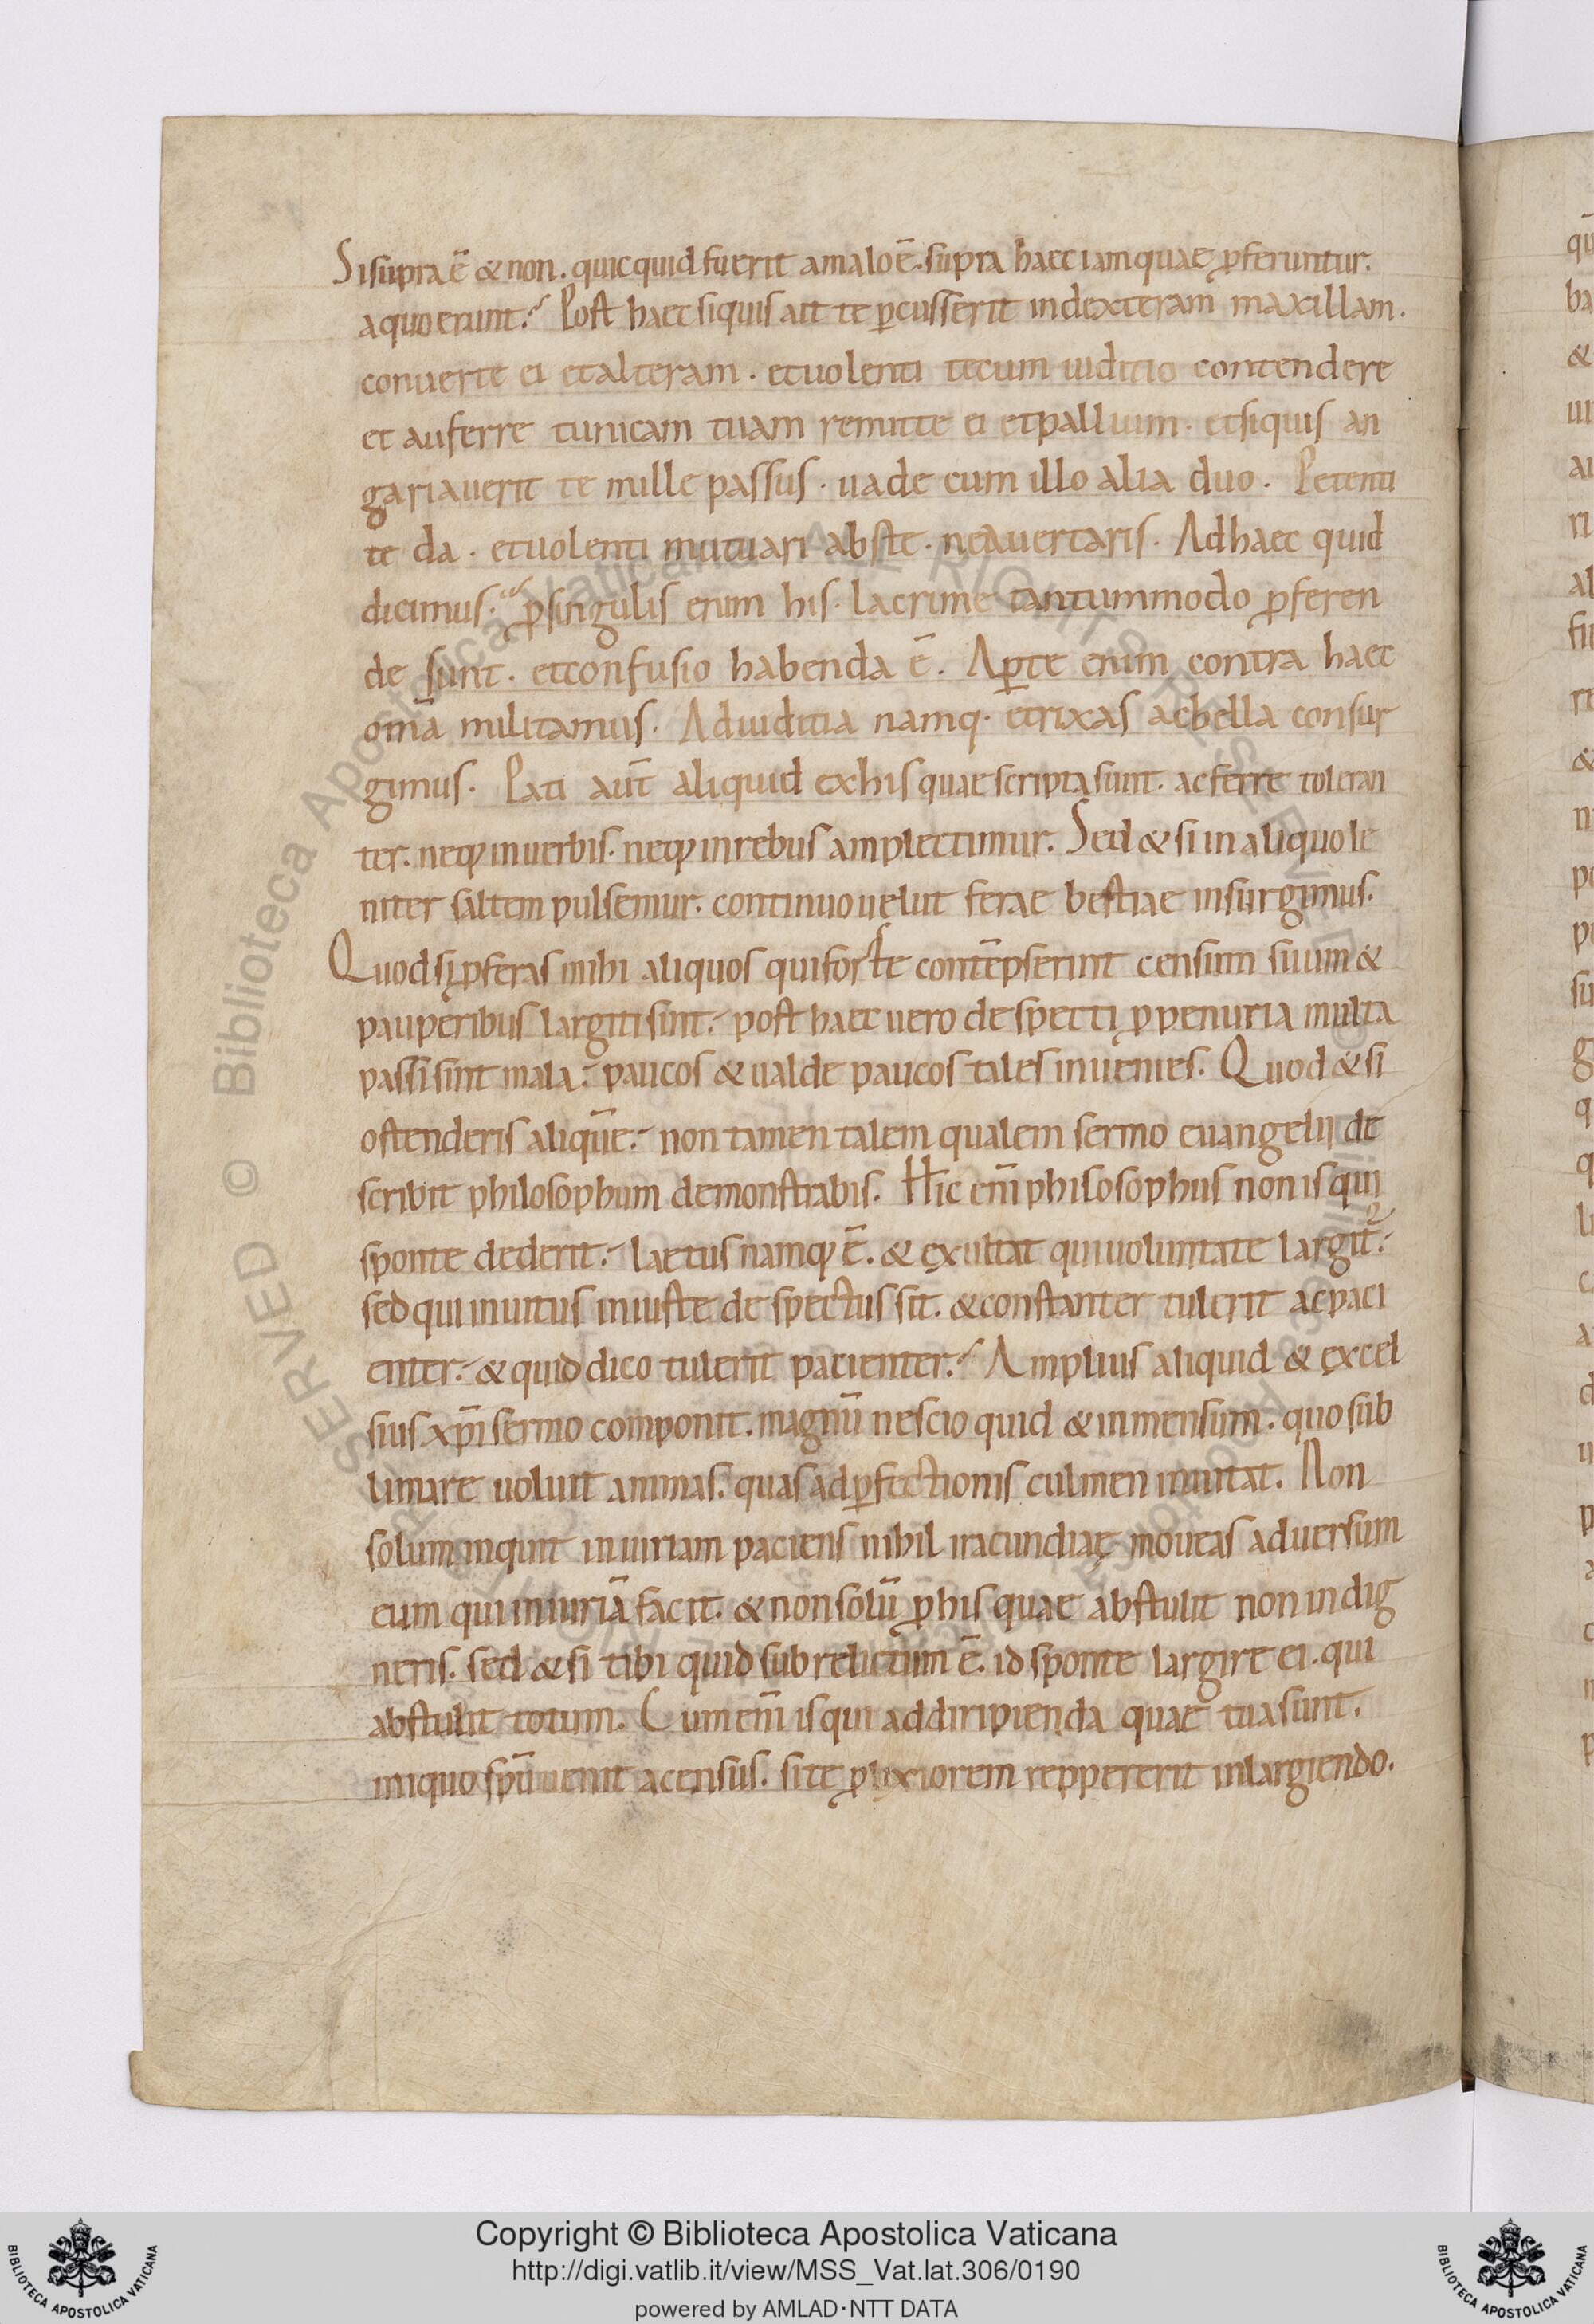 Si supra ē & non. quicquid fuerit a malo ē. supra haec iam quae ꝓferuntur.
a quo erunt? Post haec siquis ait te ꝑcusserit in dexteram maxillam.
conuerte ei et alteram. et uolenti tecum iuditio contendere
et auferre tunicam tuam remitte ei et pallium. et siquis an
gariauerit te mille passus. uade cum illo alia duo. Petenti
te da. et uolenti mutuari abs te. ne auertaris. Ad haec quid
dicimus? ꝓ singulis enim his. lacrime tantummodo ꝓferen
de sunt. et confusio habenda ē. Aꝑte enim contra haec
om̄a militamus. Ad iuditia namq. et rixas ac bella consur
gimus. Pati aut̄ aliquid ex his quae scripta sunt. ac ferre toleran
ter. neq; in uerbis. neq; in rebus amplectimur. Sed & si in aliquo le
niter saltem pulsemur. continuo uelut ferae bestiae insurgimus.
Quod si ꝓferas mihi aliquos qui forte contēpserint censum suum &
pauperibus largiti sint. post haec uero despecti ꝓ penuria multa
passi sint mala. paucos & ualde paucos tales inuenies. Quod & si
ostenderis aliquē. non tamen talem qualem sermo euangelij de
scribit philosophum demonstrabis. Hic eni̅ philosophus non is qui
sponte dederit. laetus namq; ē. & exultat qui uoluntate largit̄.
sed qui inuitus iniuste despectus sit. & constanter tulerit ac paci
enter. & quid dico tulerit pacienter? Amplius aliquid & excel
sius xp̄i sermo componit. magnū nescio quid & inmensum. quo sub
limare uoluit animas. quas ad ꝑfectionis culmen inuitat. Non
solum inquit iniuriam paciens nihil iracundiaę moueas aduersum
eum qui iniuriā facit. & non solū ꝓ his quae abstulit non indig
neris. sed & si tibi quid subrelictum ē. id sponte largire ei. qui
abstulit totum. Cum eni̅ is qui ad diripienda quae tua sunt.
iniquo sp̄u uenit acensus. si te ꝓlixiorem reppererit in largiendo.
Copyright © Biblioteca Apostolica Vaticana
http://digi.vatlib.it/view/MSS_Vat.lat.306/0190
powered by AMLAD·NTT DATA